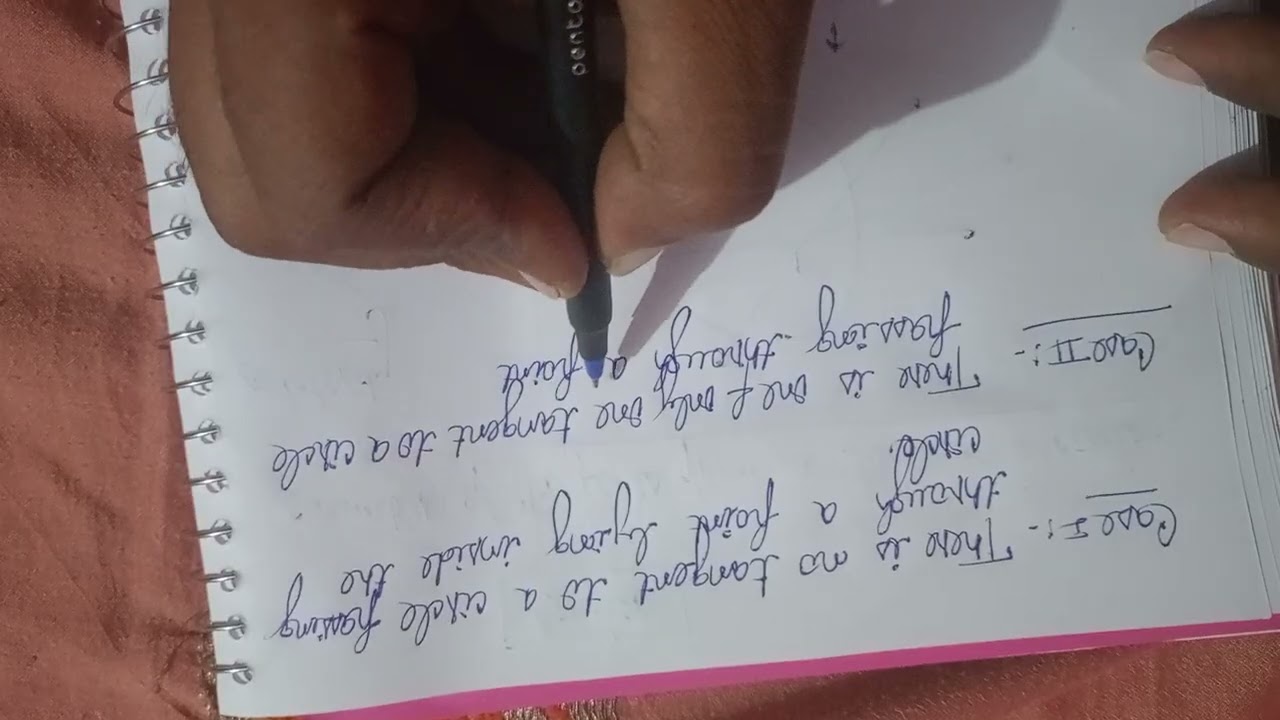 Case I :- There is no tangent to a circle passing
through a point lying inside the
circle.
Case II :- There is one & only one tangent to a circle
passing through a point
pento